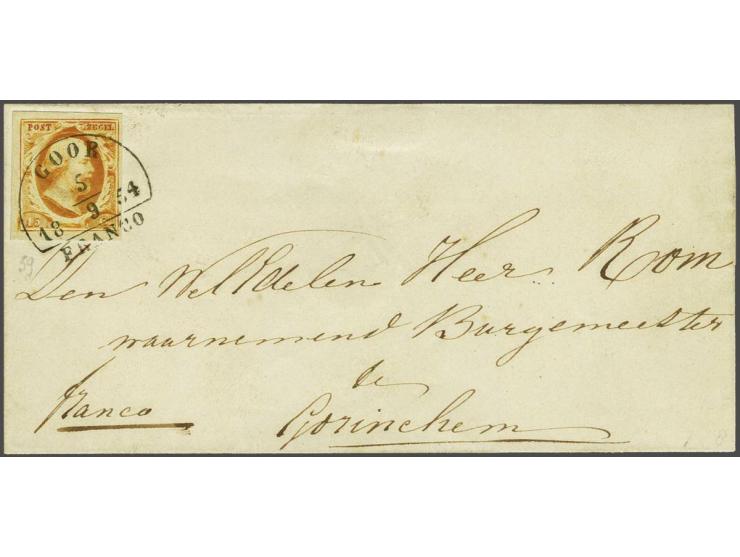 POST ZEGEL
GOOR
5
9
18 54
FRANCO
15
59
Den WelEdelen Heer Rom
waarnemend Burgemeester
te
Gorinchem
franco